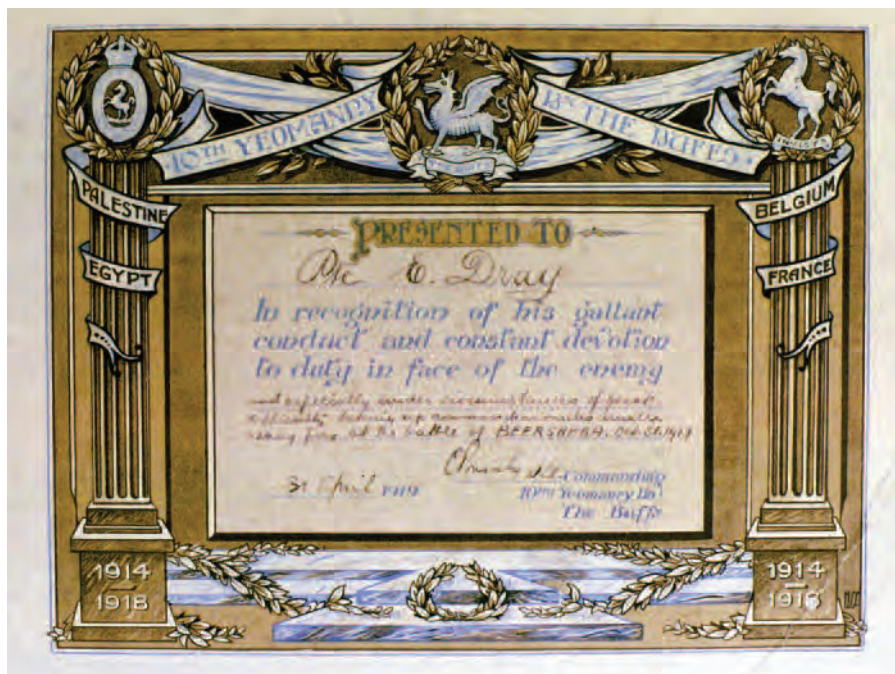 10TH YEOMANRY BN THE BUFFS
THE BUFFS
INVICTA
PALESTINE
EGYPT
BELGIUM
FRANCE
PRESENTED TO
Pte E. Dray
In recognition of his gallant
conduct and constant devotion
to duty in face of the enemy
and especially under circumstances of great
difficulty bringing up ammunition under
heavy fire at the battle of BEERSHEBA. Oct. 31. 1917
Commanding
April 1919
10TH Yeomanry Bn
The Buffs
1914
1918
1914
1918